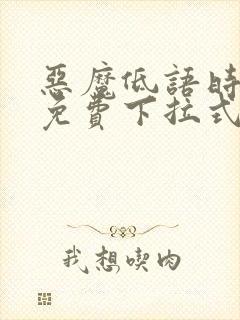 惡魔低語時
免費下拉式
我想喫肉